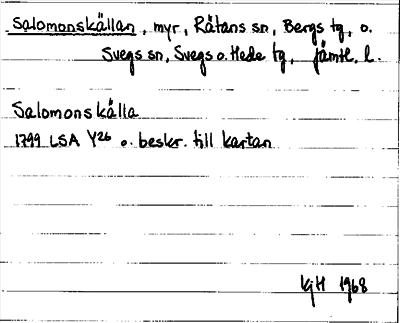 Salomonskällan, myr, Råtans sn, Bergs tg, o.
Svegs sn, Svegs o. Hede tg, Jämtl. l.
Salomonskälla
1799 LSA Y26 o. beskr. till kartan
KgH 1968